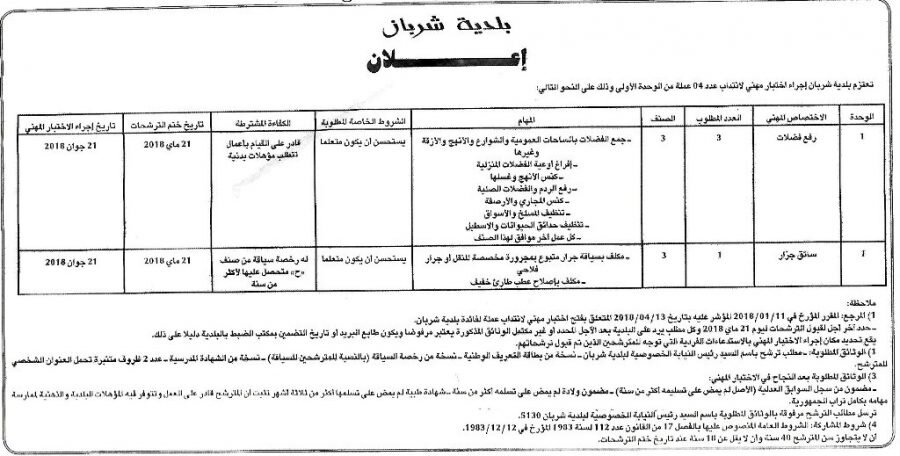 بلدية شربان
إعـــــلان
تعتزم بلدية شربان إجراء اختبار مهني لانتداب عدد 04 عملة من الوحدة الأولى وذلك على النحو التالي:
الوحدة الاختصاص المهني العدد المطلوب الصنف المهام الشروط الخاصة المطلوبة الكفاءة المشترطة تاريخ ختم الترشحات تاريخ إجراء الاختبار المهني
1 رفع فضلات 3 3 ـ جمع الفضلات بالساحات العمومية والشوارع والأنهج والأزقة يستحسن أن يكون متعلما قادر على القيام بأعمال 21 ماي 2018 21 جوان 2018
وغيرها تتطلب مؤهلات بدنية
ـ إفراغ أوعية الفضلات المنزلية
ـ كنس الأنهج وغسلها
ـ رفع الردم والفضلات الصلبة
ـ كنس المجاري والأرصفة
ـ تنظيف المسلخ والأسواق
ـ تنظيف حدائق الحيوانات والاسطبل
ـ كل عمل آخر موافق لهذا الصنف
1 سائق جرار 1 3 ـ مكلف بسياقة جرار متبوع بمجرورة مخصصة للنقل أو جرار يستحسن أن يكون متعلما له رخصة سياقة من صنف 21 ماي 2018 21 جوان 2018
فلاحي «ح» متحصل عليها لأكثر
ـ مكلف بإصلاح عطب طارئ خفيف من سنة
ملاحظة:
1) المرجع: المقرر المؤرخ في 2018/01/11 المؤشر عليه بتاريخ 2018/04/13 المتعلق بفتح اختبار مهني لانتداب عملة لفائدة بلدية شربان.
ـ حدد آخر أجل لقبول الترشحات ليوم 21 ماي 2018 وكل مطلب يرد على البلدية بعد الأجل المحدد أو غير مكتمل الوثائق المذكورة يعتبر مرفوضا ويكون طابع البريد أو تاريخ التضمين بمكتب الضبط بالبلدية دليلا على ذلك.
يقع تحديد مكان إجراء الاختبار المهني بالاستدعاءات الفردية التي توجه للمترشحين الذين تم قبول ترشحاتهم.
1) الوثائق المطلوبة: ـ مطلب ترشح باسم السيد رئيس النيابة الخصوصية لبلدية شربان ـ نسخة من بطاقة التعريف الوطنية ـ نسخة من رخصة السياقة (بالنسبة للمترشحين للسياقة) ـ نسخة من الشهادة المدرسية ـ عدد 2 ظروف متنبرة تحمل العنوان الشخصي
للمترشح.
3) الوثائق المطلوبة بعد النجاح في الاختبار المهني:
ـ مضمون من سجل السوابق العدلية (الأصل لم يمض على تسليمه أكثر من سنة) ـ مضمون ولادة لم يمض على تسلمه أكثر من سنة ـ شهادة طبية لم يمض على تسلمها أكثر من ثلاثة أشهر تثبت أن المترشح قادر على العمل وتتوفر فيه المؤهلات البدنية والذهنية لممارسة
مهامه بكامل تراب الجمهورية.
ترسل مطالب الترشح مرفوقة بالوثائق المطلوبة باسم السيد رئيس النيابة الخصوصية لبلدية شربان 5130.
4) شروط المشاركة: الشروط العامة المنصوص عليها بالفصل 17 من القانون عدد 112 لسنة 1983 المؤرخ في 1983/12/12.
أن لا يتجاوز سن المترشح 40 سنة وأن لا يقل عن 18 سنة عند تاريخ ختم الترشحات.